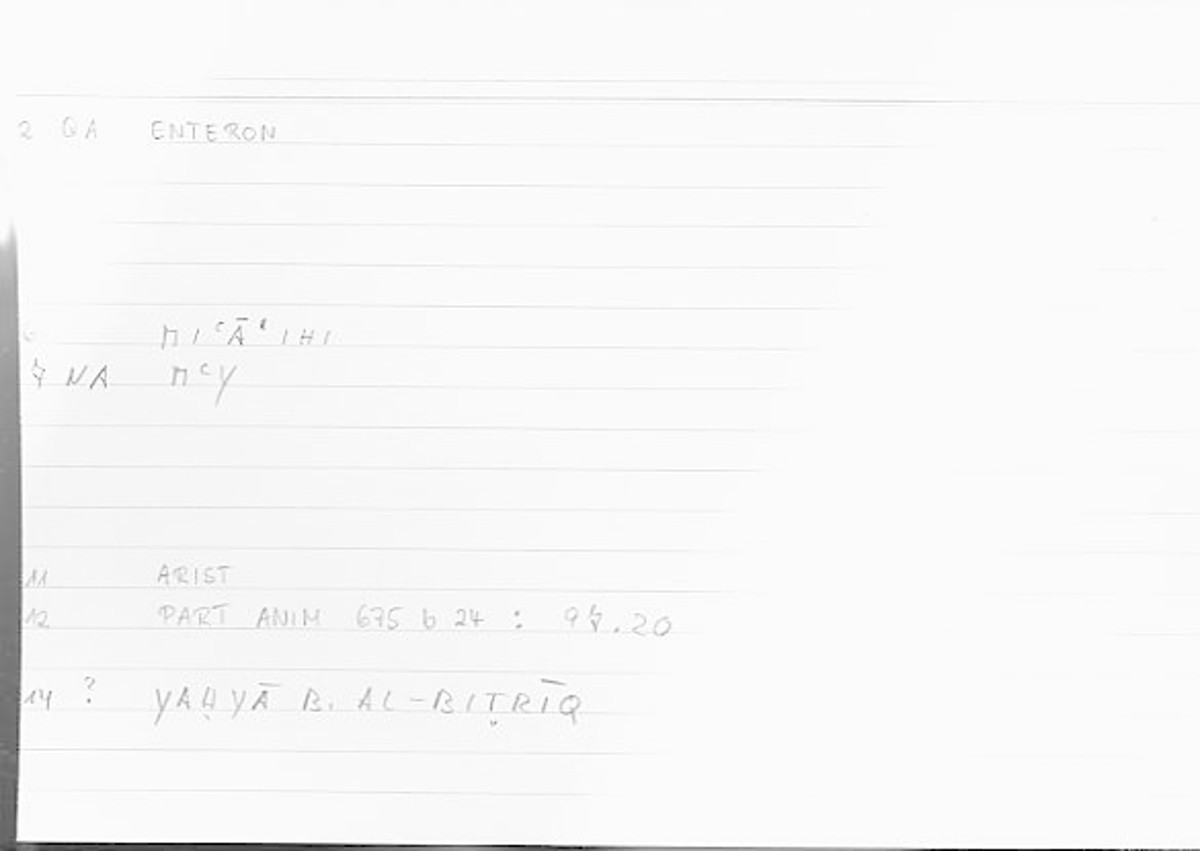 2 QA ENTERON
MIʿĀʾIHI
7 NA MʿY
11 ARIST
12 PART ANIM 675 b 24 : 97.20
14 ? YAḤYĀ B. AL-BIṬRĪQ